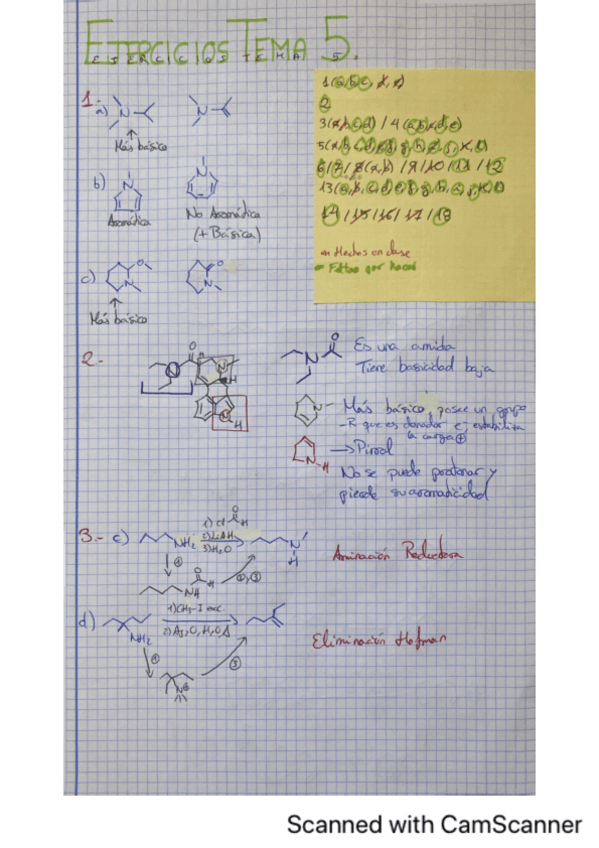 EJERCICIOS TEMA 5.
1(a,b,c,d,e)
2
3(a,b,c,d) / 4(a,b,c,d,e)
6/7/8(a,b)/9/10/11/12
14/15/16/17/18
Hechos en clase
Faltan por hacer
1-
a)
N
N
Más básico
b)
N
N
Aromática
No Aromática
(+Básica)
c)
O
N
O
N
Más básico
2.-
N
O
H
N
H
N
O
Es una amida
Tiene basicidad baja
N
Más básico, posee un grupo
-R que es donador e estabiliza
la carga ⊕
N-H
→Pirrol
No se puede protonar y
pierde su aromaticidad
3.- c)
NH2
1) Cl
O
H
2) LiAlH4
3) H2O
N
H
Aminación Reductora
①
O
H
②,③
d)
NH2
1) CH3-I exc.
2) Ag2O, H2O, Δ
Eliminación Hofman
①
N⊕
Scanned with CamScanner